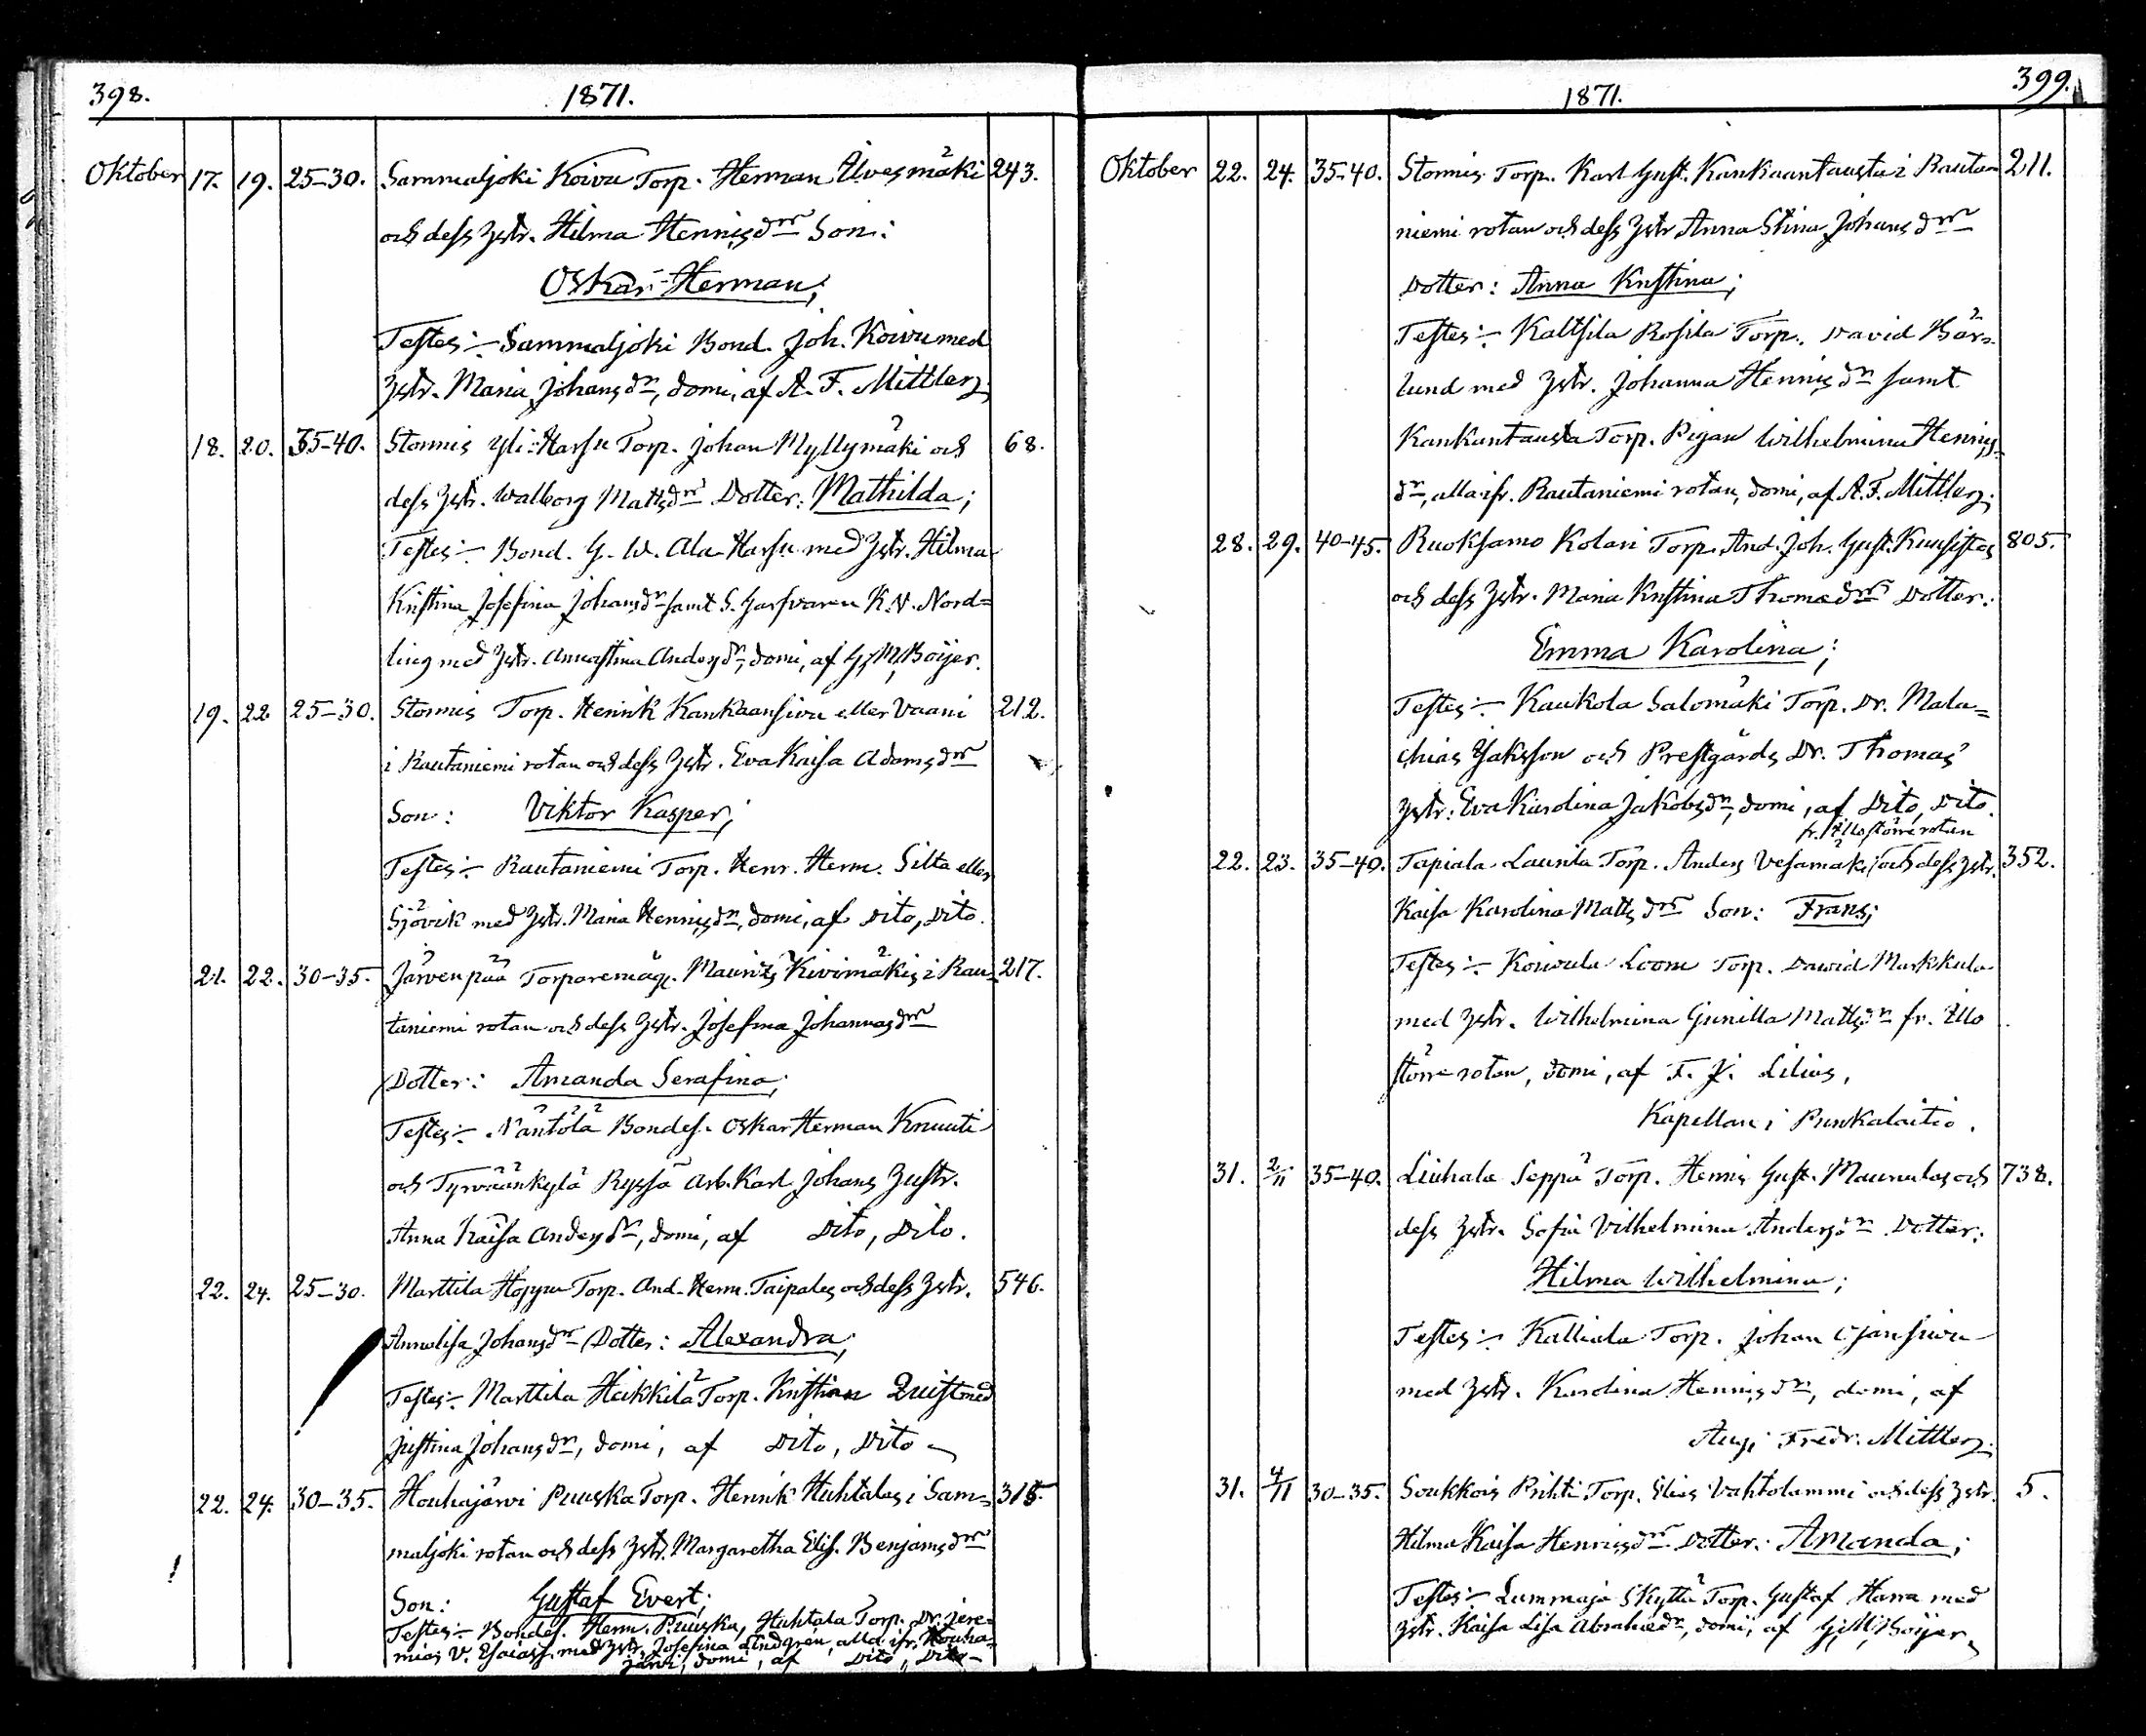 398.
1871.
Oktober 17. 19. 25-30. Sammaljoki Koivu Torp. Herman Ilvesmäki 243.
och dess hstr. Hilma Henriksdrs Son:
Oskar Herman;
Testes:- Sammaljoki Bond. Joh. Koivu med
hstr. Maria Johansdr, domi, af A. F. Mittler;
18. 20. 35-40. Stormis Yli-Harsu Torp. Johan Myllymäki och 68.
dess hstr. Walborg Mattsdrs Dotter: Mathilda;
Testes:- Bond. G. W. Ala-Harsu med hstr. Hilma
Kristina Josefina Johansdr samt S. Garfvaren K. N. Nord=
ling med hstr. Annastina Andersdr, domi, af G. M. Boijer.
19. 22 25-30. Stormis Torp. Henrik Kankaansivu eller Vaani 212.
i Rautaniemi rotan och dess hstr. Eva Kaisa Adamsdrs
Son: Viktor Kasper;
Testes:- Rautaniemi Torp. Henr. Herm. Silta eller
Sjövik med hstr. Maria Henriksdr, domi, af Dito, Dito.
21. 22. 30-35. Järvenpää Torparemåg. Maurits Kivimäkis i Rau= 217.
taniemi rotan och dess hstr. Josefina Johannasdrs
Dotter: Amanda Serafina;
Testes:- Näntölä Bondes. Oskar Herman Knuuti
och Tyrväänkylä Ryssä Arb. Karl Johans hustr.
Anna Kaisa Andersdr, domi, af Dito, Dito.
22. 24. 25-30. Marttila Hoppu Torp. And. Herm. Taipales och dess hstr. 546.
Annalisa Johansdrs Dotter: Alexandra;
Testes:- Marttila Heikkilä Torp. Kristian Quist med
Justina Johansdr, domi, af Dito, Dito
22. 24. 30-35. Houhajärvi Puuska Torp. Henrik Huhtalas i Sam= 315.
maljoki rotan och dess hstr. Margaretha Elis. Benjamsdrs
Son: Gustaf Evert;
Testes:- Bondes. Herm. Puuska, Huhtala Torp. Dr. Jere=
mias V. Esaiass. med hstr. Josefina Lindgrén, alla ifr. Houha=
järvi, domi, af Dito, Dito
399.
1871.
Oktober 22. 24. 35-40. Stormis Torp. Karl Gust. Kankaantausta i Rauta= 211.
niemi rotan och dess hstr Anna Stina Johansdrs
Dotter: Anna Kristina;
Testes:- Kaltsila Rosila Torp. David Bärs=
lund med hstr. Johanna Henriksdr samt
Kankantausta Torp. Pigan Wilhelmina Henriks=
dr, alla ifr. Rautaniemi rotan, domi, af A. F. Mittler;
28. 29. 40-45. Ruoksamo Kolari Torp. And. Joh. Gust. Kuusistos 805.
och dess hstr. Maria Kristina Thomædrs Dotter:
Emma Karolina;
Testes:- Kaukola Salomäki Torp. Dr. Mala=
chias Isaksson och Prestgårds Dr. Thomas'
hstr: Eva Karolina Jakobsdr, domi, af Dito, Dito.
fr. Illo större rotan
22. 23. 35-40. Tapiala Launila Torp. Anders Vesamäki och dess hstr. 352.
Kaisa Karolina Mattsdrs Son: Frans;
Testes:- Koivula Loom Torp. David Markkula
med hstr. Wilhelmina Gunilla Mattsdr fr. Illo
större rotan, domi, af F. J. Lilius,
Kapellan i Punkalaitio.
31. 2/11 35-40. Liuhala Seppä Torp. Henris Gust. Maunulas och 738.
dess hstr. Sofia Vilhelmina Andersdrs Dotter:
Hilma Wilhelmina;
Testes:- Kalliala Torp. Johan Ojansivu
med hstr. Karolina Henriksdr, domi, af
Aug. Fredr. Mittler;
31. 4/11 30-35. Soukkois Prihti Torp. Elias Vahtolammi och dess hstr. 5.
Hilma Kaisa Henriksdrs Dotter: Amanda;
Testes:- Lummaja Skyttä Torp. Gustaf Harra med
hstr. Kaisa Lisa Abrahamsdr, domi, af G. M. Boijer